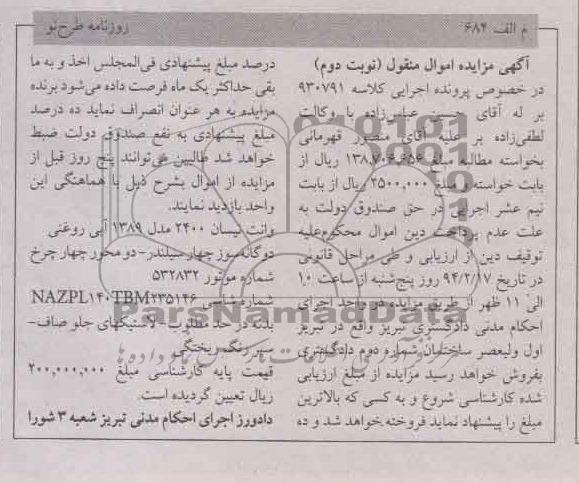 م الف ۶۸۴
روزنامه طرح نو
آگهی مزایده اموال منقول (نوبت دوم)
در خصوص پرونده اجرایی کلاسه ۹۳۰۷۹۱
بر له آقای حسن عباس‌زاده با وکالت
لطفی‌زاده بر علیه آقای منصور قهرمانی
بخواسته مطالبه مبلغ ۱۳۸,۷۰۶,۶۵۶ ریال از
بابت خواسته و مبلغ ۲۵۰۰,۰۰۰ ریال از بابت
نیم عشر اجرایی در حق صندوق دولت به
علت عدم پرداخت دین اموال محکوم‌علیه
توقیف دین از ارزیابی و طی مراحل قانونی
در تاریخ ۹۴/۲/۱۷ روز پنج‌شنبه از ساعت ۱۰
الی ۱۱ ظهر از طریق مزایده در واحد اجرای
احکام مدنی دادگستری تبریز واقع در تبریز
اول ولیعصر ساختمان شماره دوم دادگستری
بفروش خواهد رسید مزایده از مبلغ ارزیابی
شده کارشناسی شروع و به کسی که بالاترین
مبلغ را پیشنهاد نماید فروخته خواهد شد و ده
درصد مبلغ پیشنهادی فی‌المجلس اخذ و به ما
بقی حداکثر یک ماه فرصت داده می‌شود برنده
مزایده به هر عنوان انصراف نماید ده درصد
مبلغ پیشنهادی به نفع صندوق دولت ضبط
خواهد شد طالبین می‌توانند پنج روز قبل از
مزایده از اموال بشرح ذیل با هماهنگی این
واحد بازدید نمایند.
وانت نیسان ۲۴۰۰ مدل ۱۳۸۹ آبی روغنی
دوگانه سوز چهار سیلندر- دو محور چهار چرخ
شماره موتور ۵۳۲۸۳۲
شماره شاسی NAZPL۱۴۰TBM۲۳۵۱۴۶
بدنه در حد مطلوب- لاستیکهای جلو صاف-
سپر رنگ ریختگی
قیمت پایه کارشناسی مبلغ ۲۰۰,۰۰۰,۰۰۰
ریال تعیین گردیده است.
دادورز اجرای احکام مدنی تبریز شعبه ۳ شورا
ParsNamadData